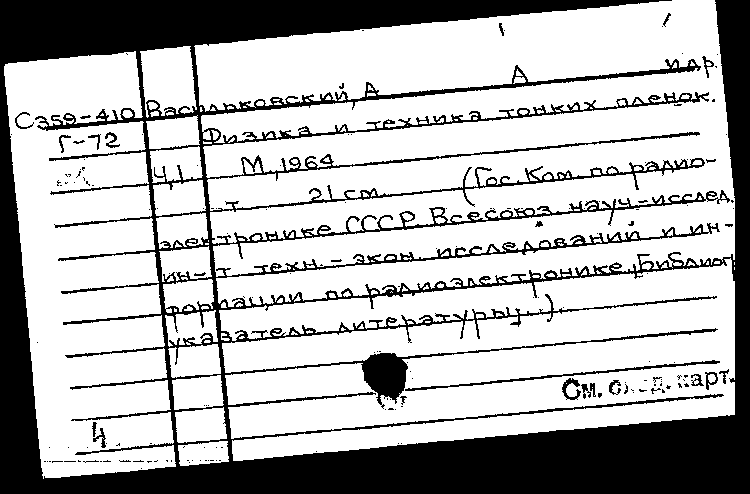 Са59-410 Васильковский, А А и др.
Г-72 Физика и техника тонких пленок.
Ч,1. М.,1964
т 21 см. (Гос. Ком. по радио-
электронике СССР. Всесоюз. науч.-исслед.
ин-т техн.-экон. исследований и ин-
формации по радиоэлектронике. Библиогр
указатель литературы...).
См. след. карт.
4